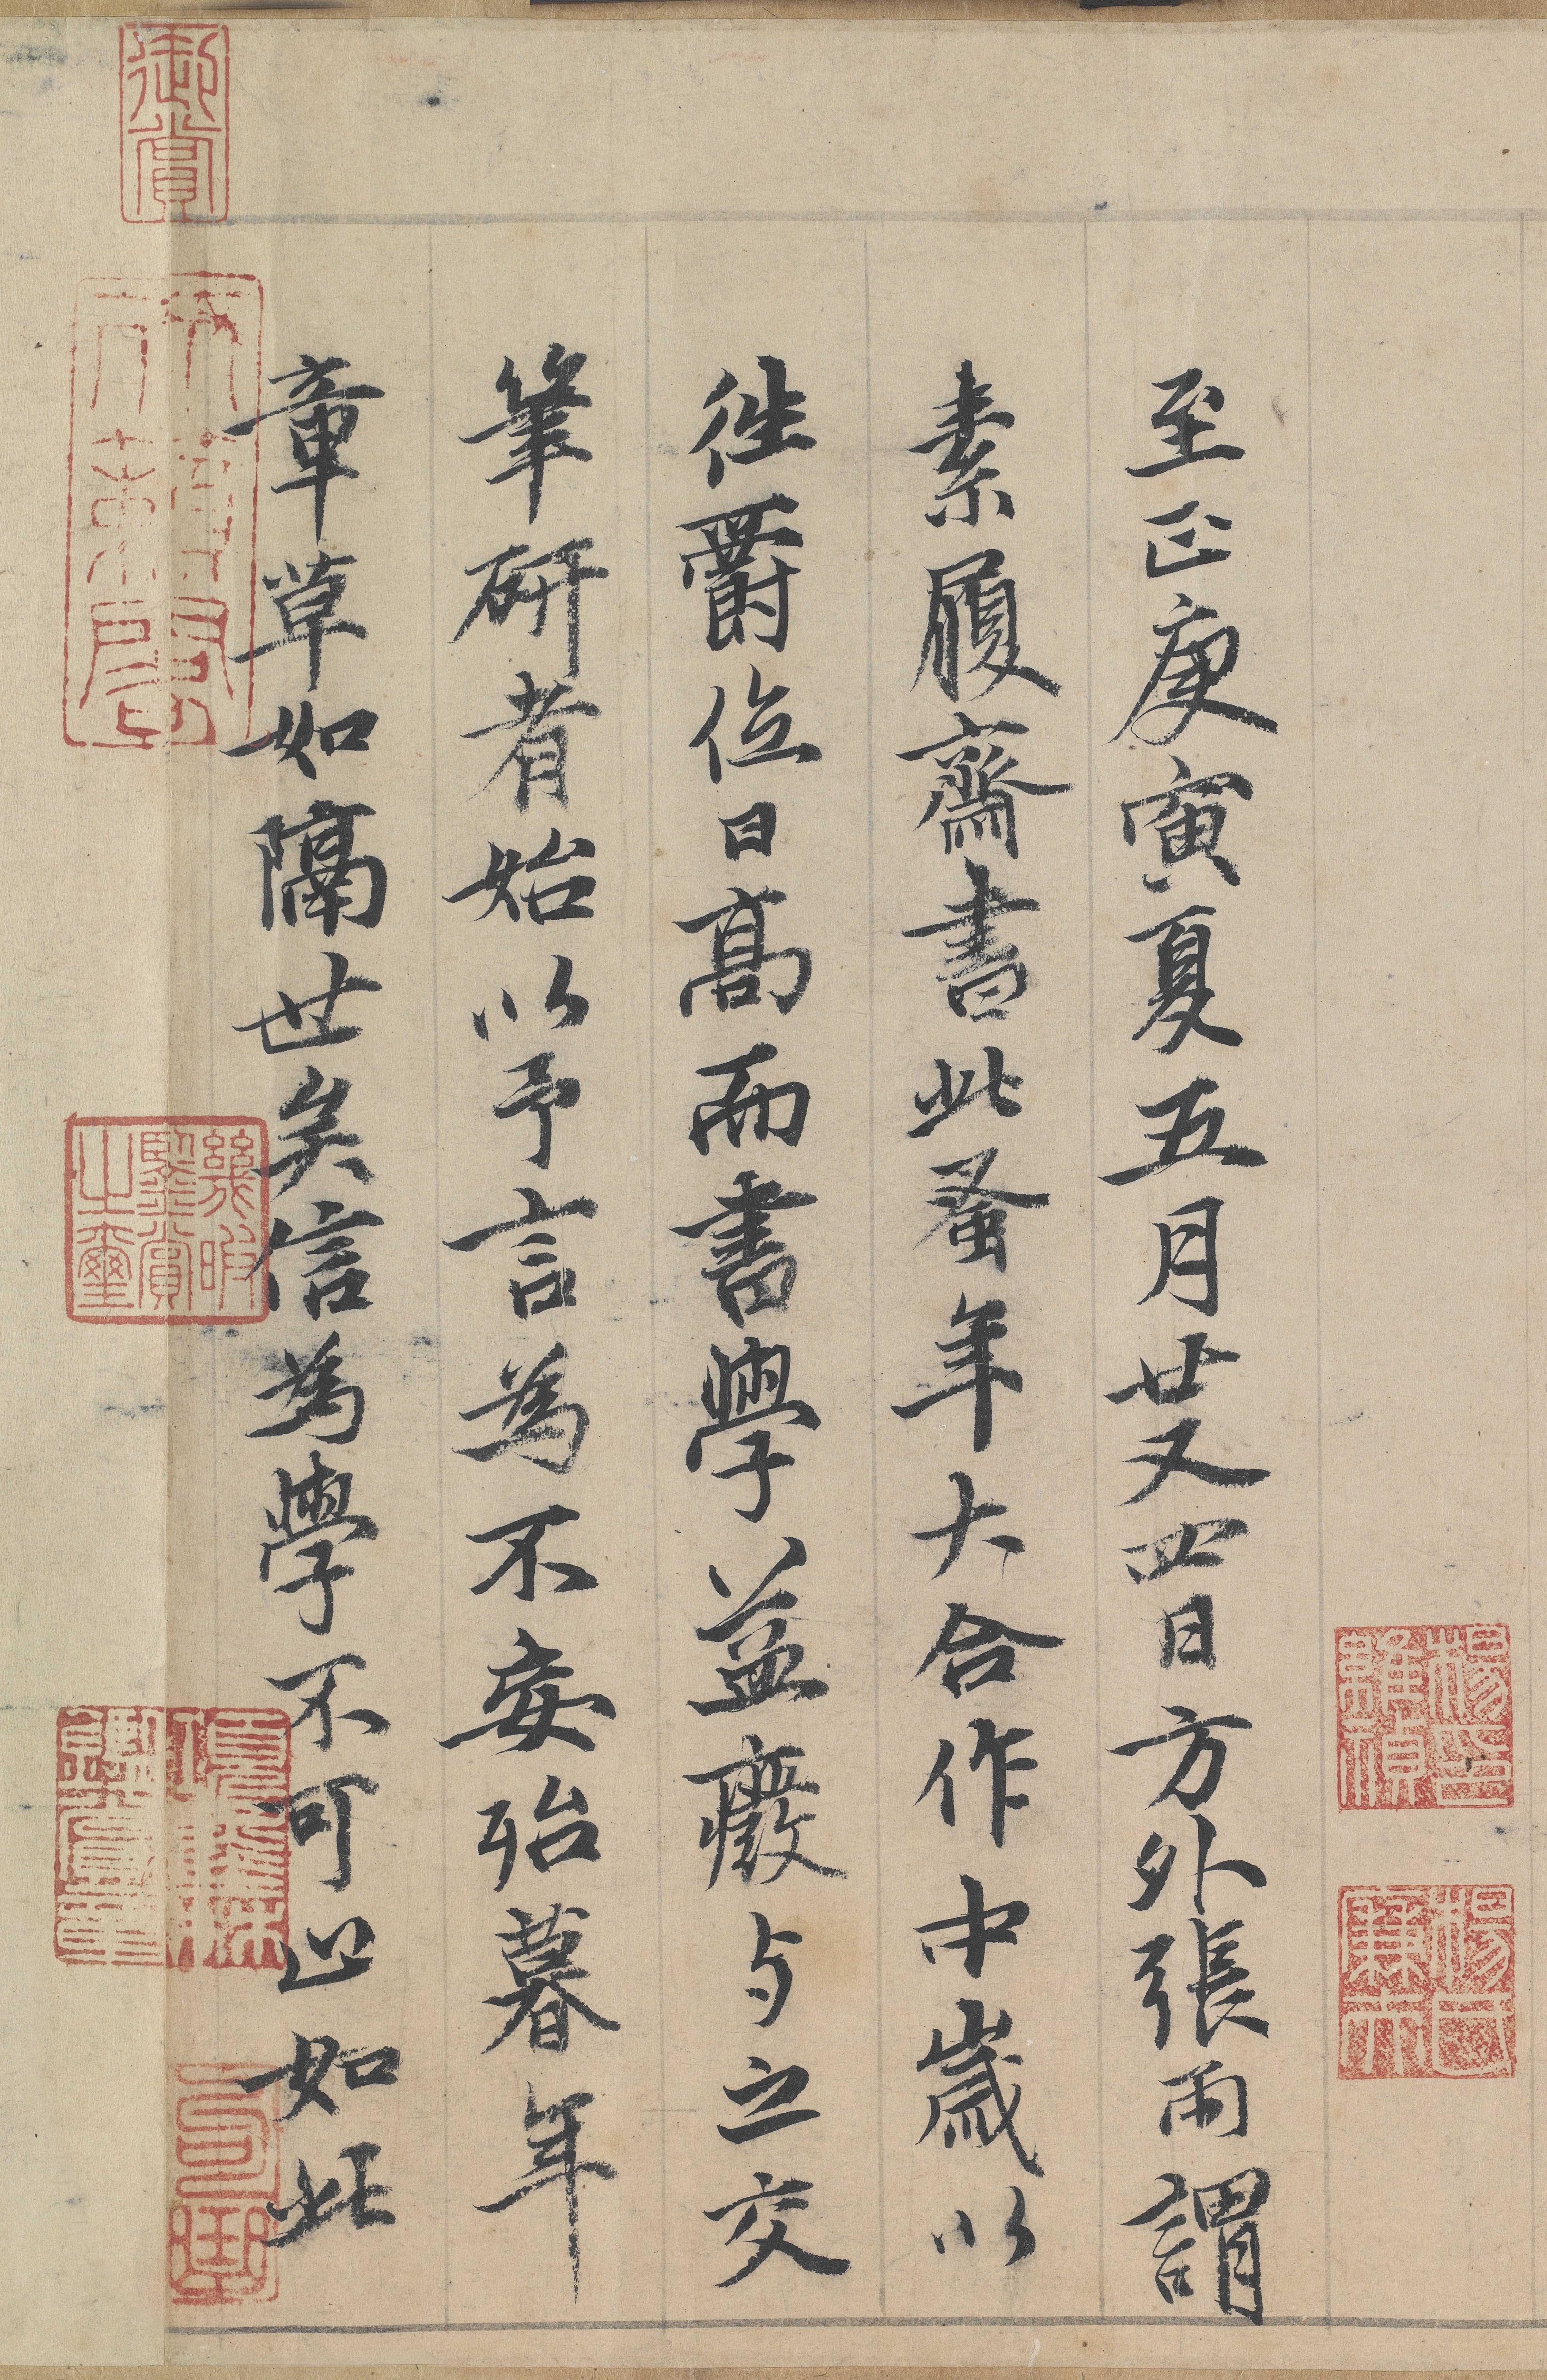 至正庚寅夏五月廿又四日方外張雨謂
素履齋書此蚤年大合作中歲以
徃爵位日高而書學益癈与之交
筆研者始以予言為不妄殆暮年
章草如隔世矣信為學不可止如此
御賞
幾暇鑒賞之璽